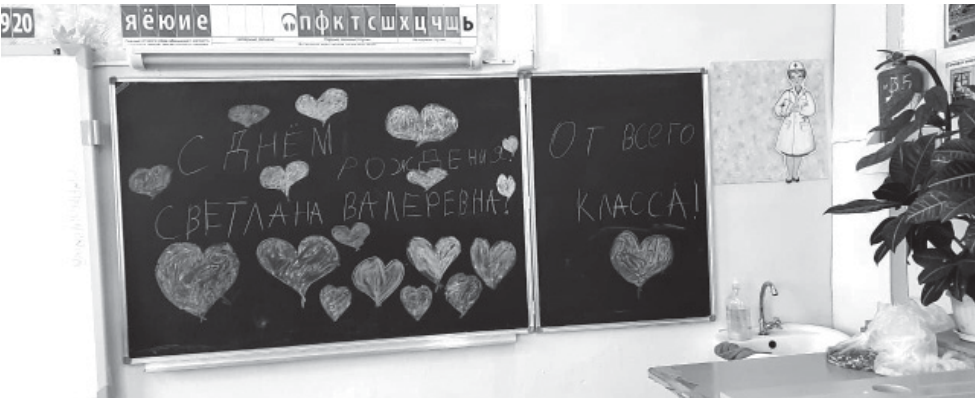 920
яёюие
пфктсшхцчщь
С ДНЁМ
РОЖДЕНИЯ!
СВЕТЛАНА ВАЛЕРЕВНА!
ОТ ВСЕГО
КЛАССА!